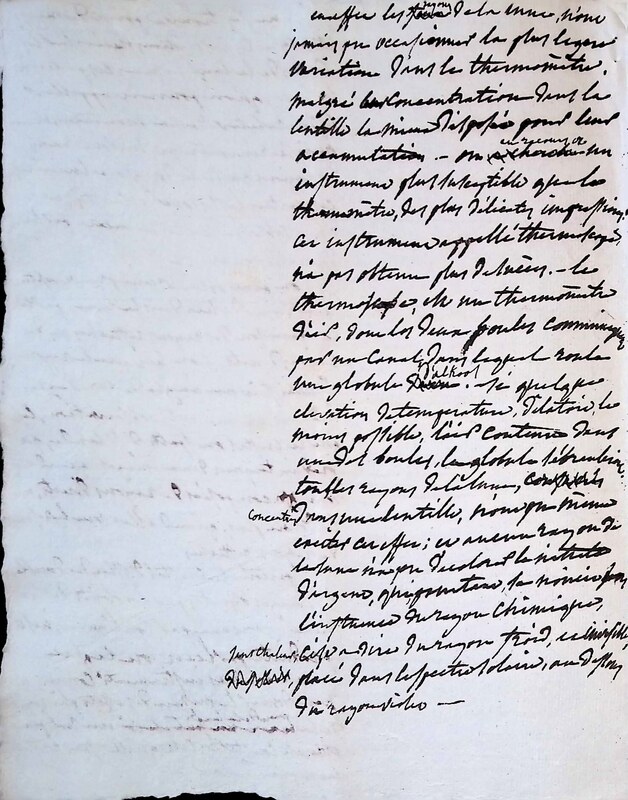 en effet les rayons de la lune, n'ont
jamais pu occasionner la plus legere
variation dans le thermomètre,
malgré leur concentration dans la
lentille la mieux disposée pour leur
accumulation. — on a eu recours a un
instrument plus susceptible que le
thermomètre, des plus délicates impressions.
cet instrument appellé thermoscope
n'a pas obtenu plus de succes. — le
thermoscope, est un thermomètre
d'air, dont les deux boules communiquent
par un canal, dans lequel roule
une globule d'alkool. si quelque
elevation de temperature, dilatoit le
moins possible, l'air contenu dans
une des boules, le globule
tous les rayons de la lune,
concentrés dans une lentille, n'ont pu même
exciter cet effet; et aucun rayon de
la lune n'a pu decolorer le nitrate
d'argent, qui pourtant, se noircit par
l'influence du rayon chimique,
c'est a dire du rayon froid, et invisible,
sans chaleur, placé dans le spectre solaire, au dessous
du rayon violet —